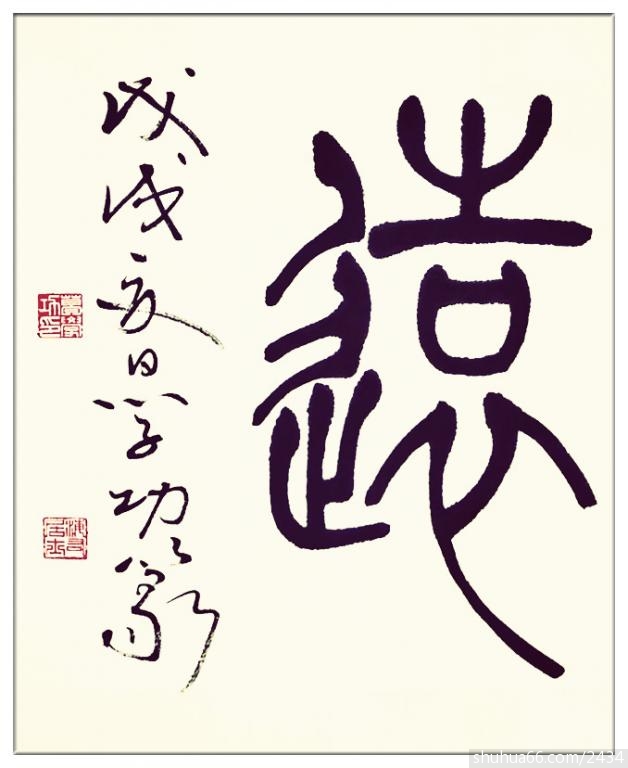 遠
戊戌夏日学功篆
shuhua66.com/2434